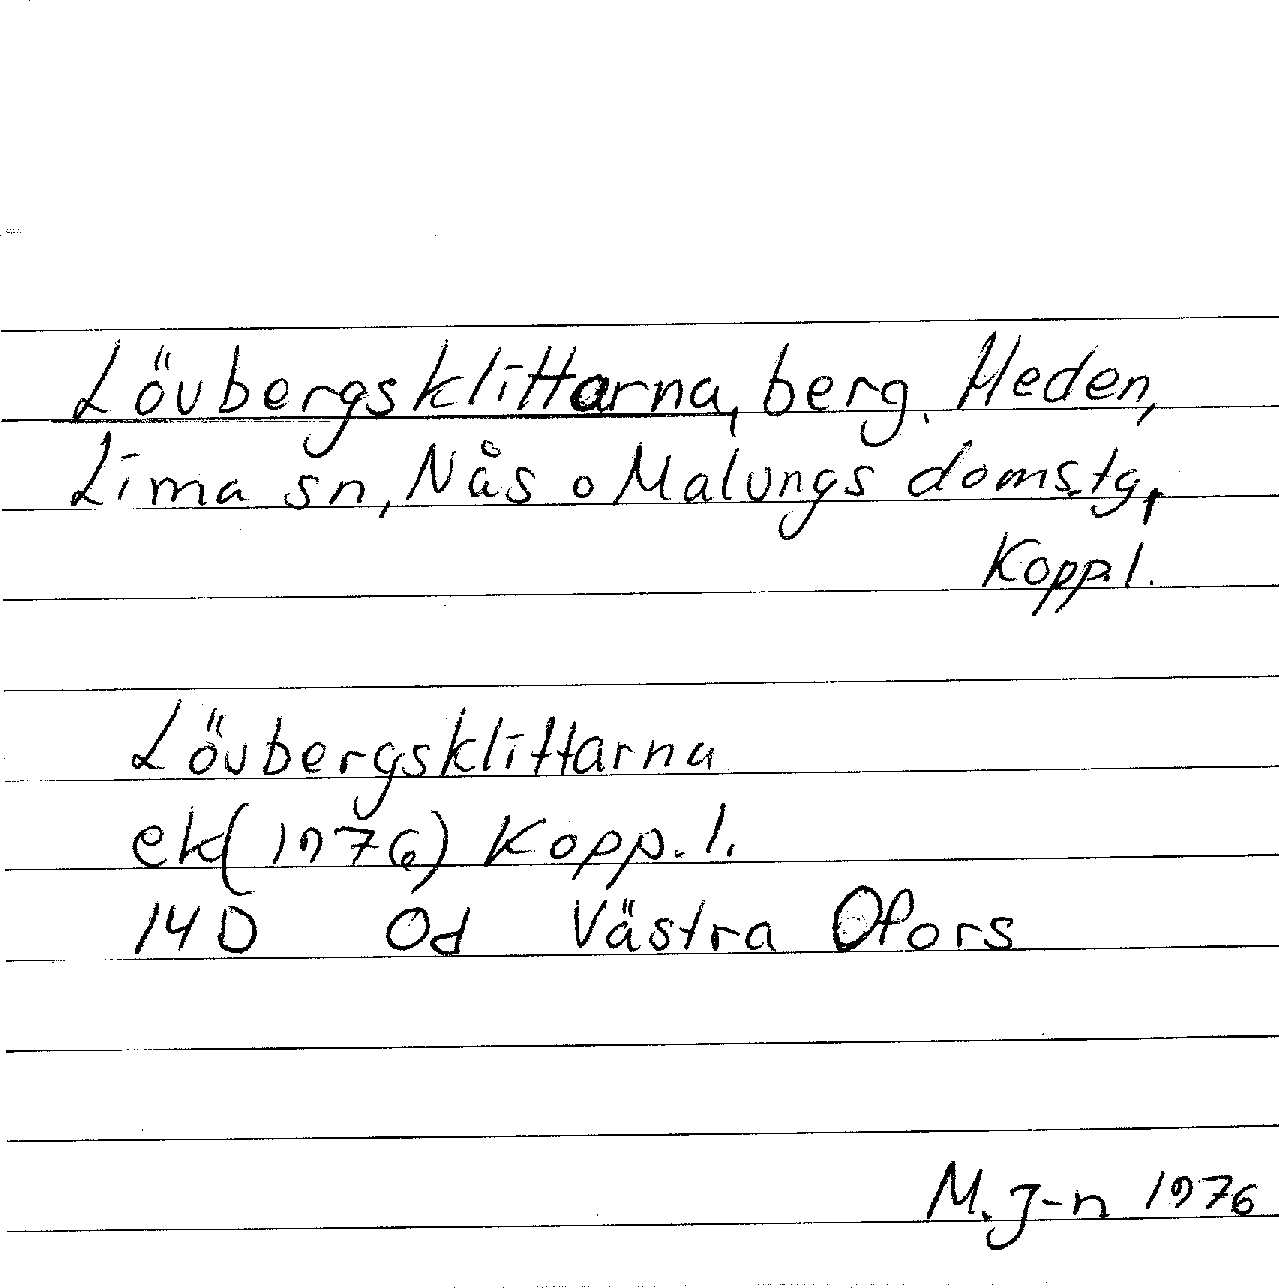 Lövbergsklittarna, berg. Heden,
Lima sn, Nås o Malungs doms.tg,
Kopp.l.
Lövbergsklittarna
ek(1976) Kopp.l.
14D 0d Västra Ofors
M. J-n 1976